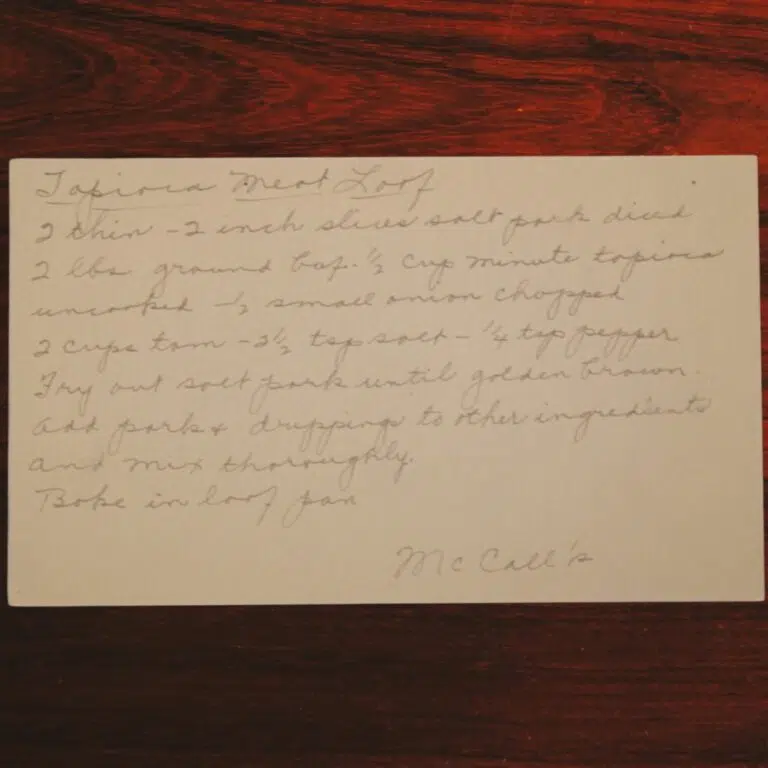 Tapioca Meat Loaf
2 thin - 2 inch slices salt pork diced
2 lbs ground beef - ½ cup minute tapioca
uncooked - ½ small onion chopped
2 cups tom - 2½ tsp salt - ¼ tsp pepper
Fry out salt pork until golden brown.
Add pork & drippings to other ingredients
and mix thoroughly.
Bake in loaf pan
McCall's